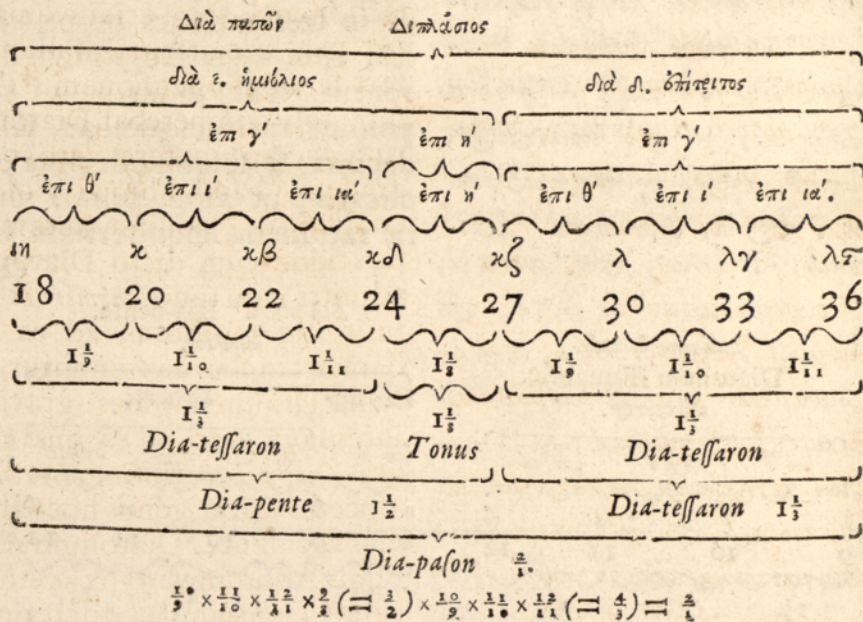 Διὰ πασῶν Διπλάσιος
διὰ ε. ἡμιόλιος διὰ δ. ἐπίτριτος
ἐπι γʹ ἐπι ηʹ ἐπι γʹ
ἐπι θʹ ἐπι ιʹ ἐπι ιαʹ ἐπι ηʹ ἐπι θʹ ἐπι ιʹ ἐπι ιαʹ.
ιη κ κβ κδ κζ λ λγ λϛ
18 20 22 24 27 30 33 36
1 1/9 1 1/10 1 1/11 1 1/8 1 1/9 1 1/10 1 1/11
1 1/3 1 1/8 1 1/3
Dia-teſſaron Tonus Dia-teſſaron
Dia-pente 1 1/2 Dia-teſſaron 1 1/3
Dia-paſon 2/1.
10/9 × 11/10 × 12/11 × 9/8 (= 3/2) × 10/9 × 11/10 × 12/11 (= 4/3) = 2/1